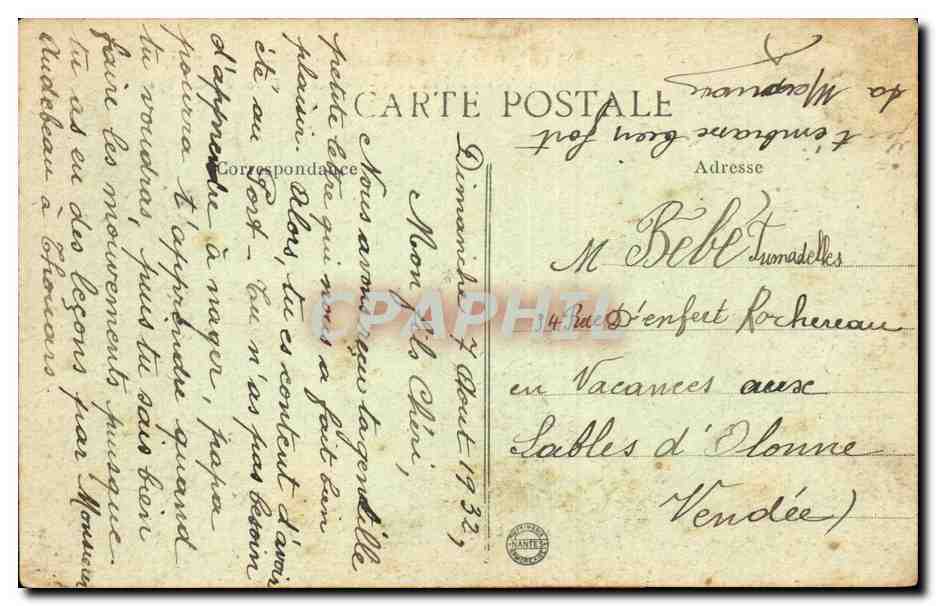 CARTE POSTALE
Correspondance
Adresse
Dimanche 7 Aout 1932,
Mon fils Chéri,
Nous avons reçu ta gentille
petite lettre qui nous a fait bien
plaisir. Alors, tu es content d'avoir
été au Port - Tu n'as pas besoin
d'apprendre à nager, papa
pourra t'apprendre quand
tu voudras, puis tu sais bien
faire les mouvements puisque
tu as eu des leçons par Monsieur
Audebeau à Thouars.
t'embrasse bien fort
Ta Maman
M Bébé Fumadelles
34 Rue D'enfert Rochereau
en Vacances aux
Sables d'Olonne
Vendée)
CPAPHIL
NANTES